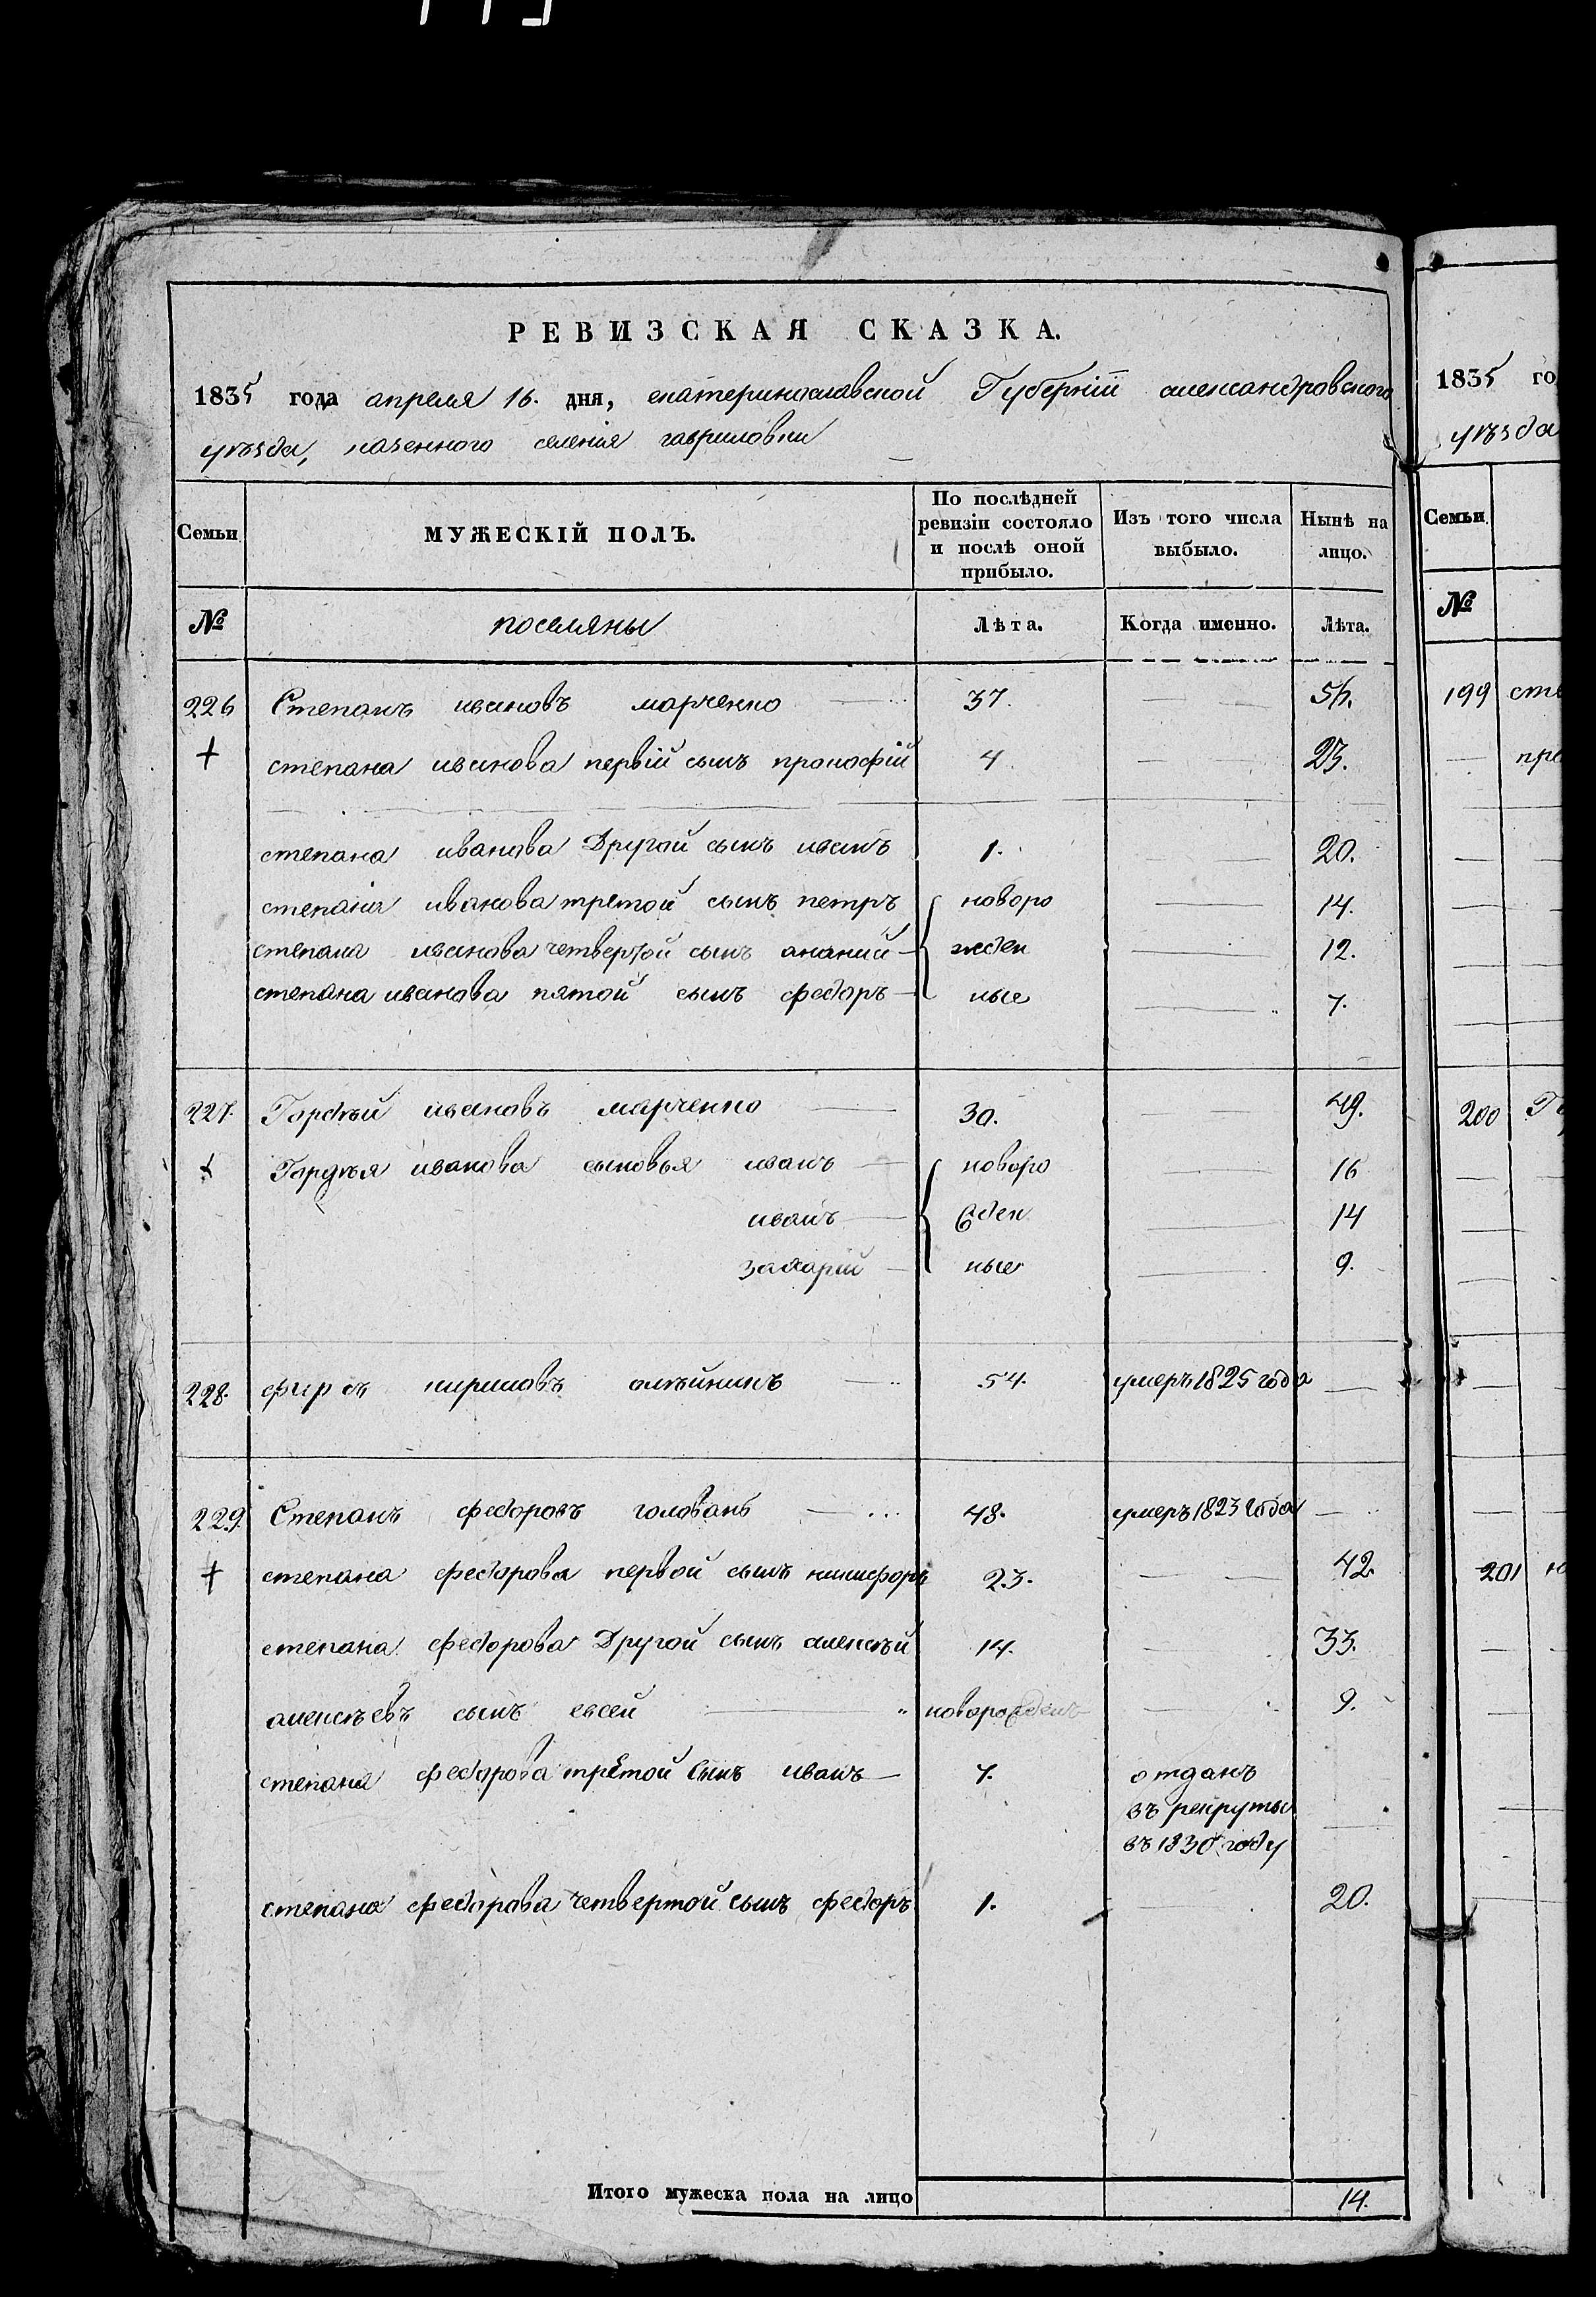 РЕВИЗСКАЯ СКАЗКА.
1835 года апреля 16. дня, екатеринославской Губерніи александровского
уѣзда, казенного селенія гавриловки
Семьи
МУЖЕСКІЙ ПОЛЪ.
По послѣдней ревизіи состояло и послѣ оной прибыло.
Изъ того числа выбыло.
Нынѣ на лицо.
№ поселяны Лѣта. Когда именно. Лѣта.
226 Степанъ ивановъ марченко 37. 56.
+ степана иванова первій сынъ прокофій 4 23.
степана иванова Другой сынъ иванъ 1. 20.
степана иванова третой сынъ петръ новоро 14.
степана иванова четвертой сынъ ананій жден 12.
степана иванова пятой сынъ федоръ ные 7.
227. Гордѣй ивановъ марченко 30. 49.
+ Гордѣя иванова сыновья иванъ новоро 16
иванъ жден 14
захарій ные 9.
228. фирсъ кириловъ олѣйникъ 54. умеръ 1825 года
229. Степанъ федоровъ головань 48. умеръ 1823 года
+ степана федорова первой сынъ никифоръ 23. 42.
степана федорова Другой сынъ алексѣй 14. 33.
алексѣевъ сынъ евсей новорожденъ 9.
степана федорова третой сынъ иванъ 7. отданъ
въ рекруты
въ 1830 году
степана федорова четвертой сынъ федоръ 1. 20.
Итого мужеска пола на лицо 14.
1835 го
уѣзда
Семьи
№
199 сте
пр
200 Г
201